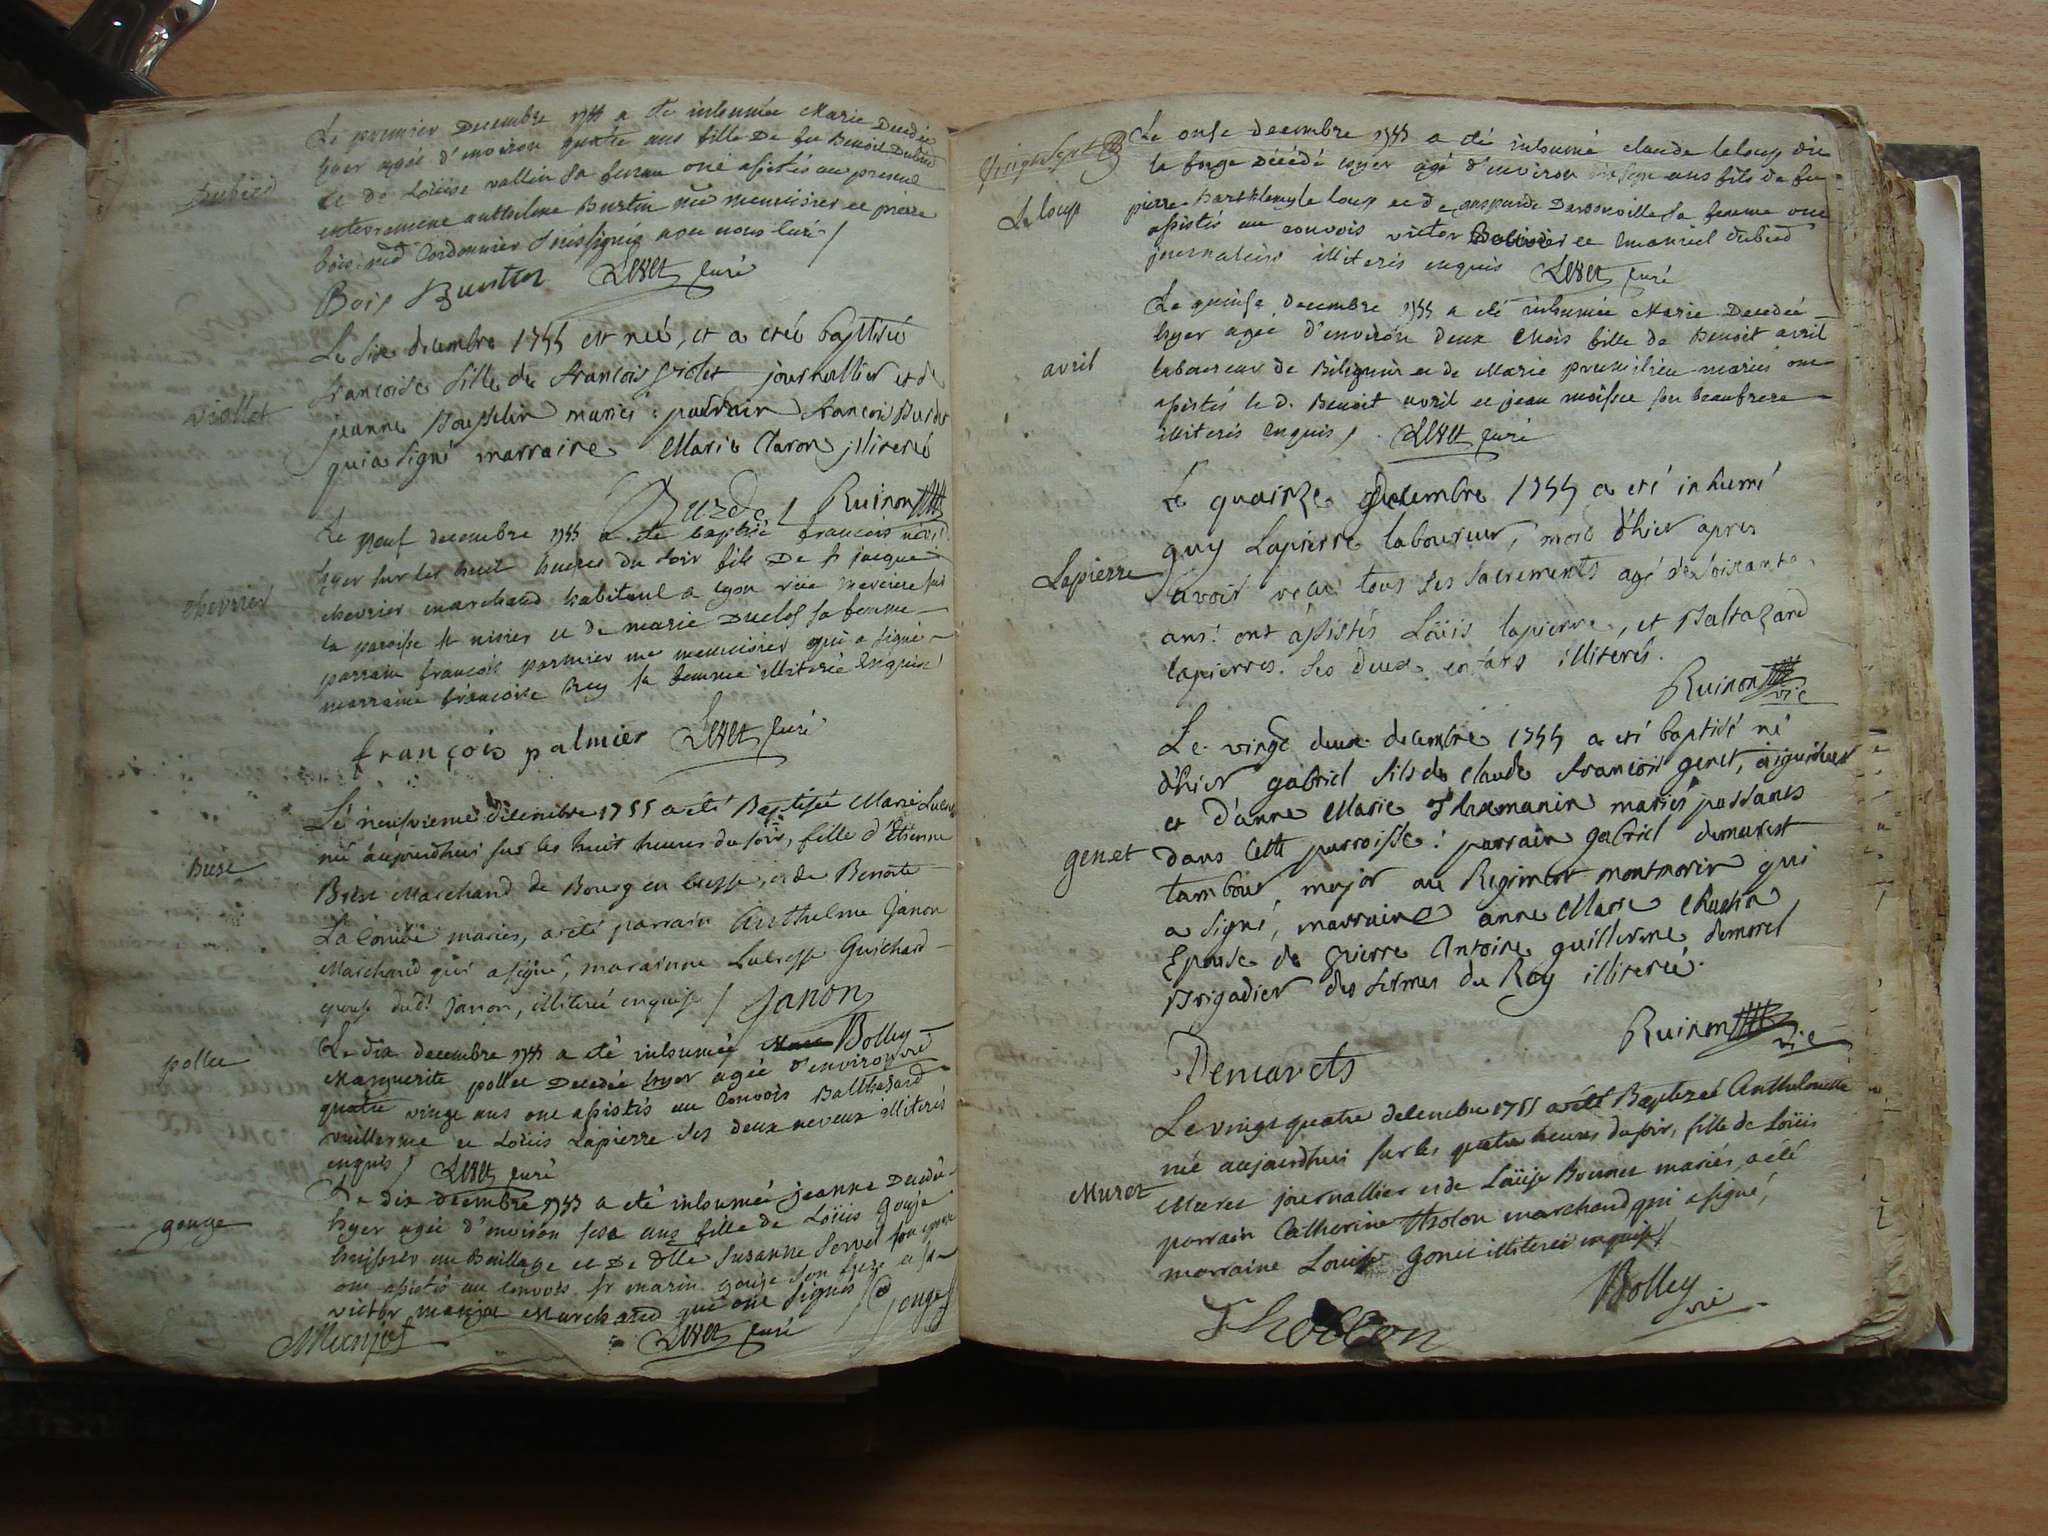 Le premier Decembre 1755 a été inhumée Marie Decedée
hyer agée d'environ quatre ans fille De feu Benoit Dubied
Dubied
et de Loüise vallin sa femme ont assistés au present
enterrement anthelme Burtin me menuisier et pierre
bois md Cordonnier soussignés avec nous Curé /
Bois Burttin Levet Curé
Le six decembre 1755 est née, et a etée baptisée
francoise fille de francois violet journallier et de
viollet
jeanne mariés : parrain francois Burde
qui a signé marraine Marie Claron illiterée
Burde Ruinon
Le Neuf decembre 1755 a été baptisé francois né
hyer sur les huit heures du soir fils De Sr jacque
chevrier
chevrier marchand habitant a lyon rüe merciere sur
la paroisse st nisier et de marie Duclos sa femme
parrain francois parmier me menuisier qui a signé
marraine francoise Rey sa femme illiterée Enquise
françois palmier Levet Curé
Le neufvieme decembre 1755 a eté Baptisée Marie
née aujourdhui sur les huit heures du soir, fille d'Etienne
Brese
Brese Marchand de Bourg en bresse, et de Benoite
Lacombe mariés, a eté parrain Anthelme Janon
Marchand qui a signé, marainne Lucresse Guichard
epouse dudt Janon, illiterée enquise / Janon
Le dix decembre 1755 a été inhumée Bolley
pollet
Marguerite pollet Decedée hyer agée d'environ
quatre vingt ans ont assistés au Convois Balthazard
vuillerme et Loüis Lapierre ses deux neveux illiterés
enquis / Levet Curé
Le dix decembre 1755 a été inhumée jeanne Decedée
gouge
hyer agée d'environ seze ans fille de Loüis Gouje
huissier au Baillage et De dlle Susanne Servet son epouse
ont assistés au Convois sr marin gouje son frere et sr
victor monjot Marchand qui ont signés / gouge
Monjot Levet Curé
vingt sept
Le onse decembre 1755 a été inhumé claude leloup dit
la forge Décédé hyer agé d'environ ans fils de feu
Leloup
pierre Barthelemy le loup et de sa femme ont
assistés au convois victor et Emanuel dubied
journaliers illiterés enquis Levet Curé
Le quinse decembre 1755 a été inhumée Marie Decedée
hyer agée d'environ deux Mois fille de Benoit avril
avril
laboureur de Billignin et de Marie prumilieu mariés ont
assistés le d. Benoit avril et jean moisse son beaufrere
illiterés Enquis / Levet Curé
Le quainze decembre 1755 a eté inhumé
guy Lapierre laboureur, mort d'hier apres
Lapierre
avoir recu tous ses sacrements agé de soixante
ans : ont assistés Loüis lapierre, et Baltazard
lapierre. ses deux enfans illiterés.
Ruinon vic
Le vingt deux decembre 1755 a eté baptisé né
d'hier gabriel fils de claude francois genet, aiguiseur
et d'anne Marie mariés passants
genet
dans cette parroisse : parrain gabriel demarest
tambour major au Regiment montmorin qui
a signé, marraine anne Marie
Epouse de pierre Antoine guillerme demorel
Brigadier des fermes du Roy illiterée.
Ruinon vic
Demarets
Le vingt quatre decembre 1755 a eté Baptezée Anthelmette
née aujourdhui sur les quatre heures du soir, fille de Loüis
Muret
Muret journallier et de Loüise Bonnet mariés, a eté
parrain Catherine Tholon marchand qui a signé,
marraine Louise Gonet illiterée enquise /
Bolley vic
Thollon